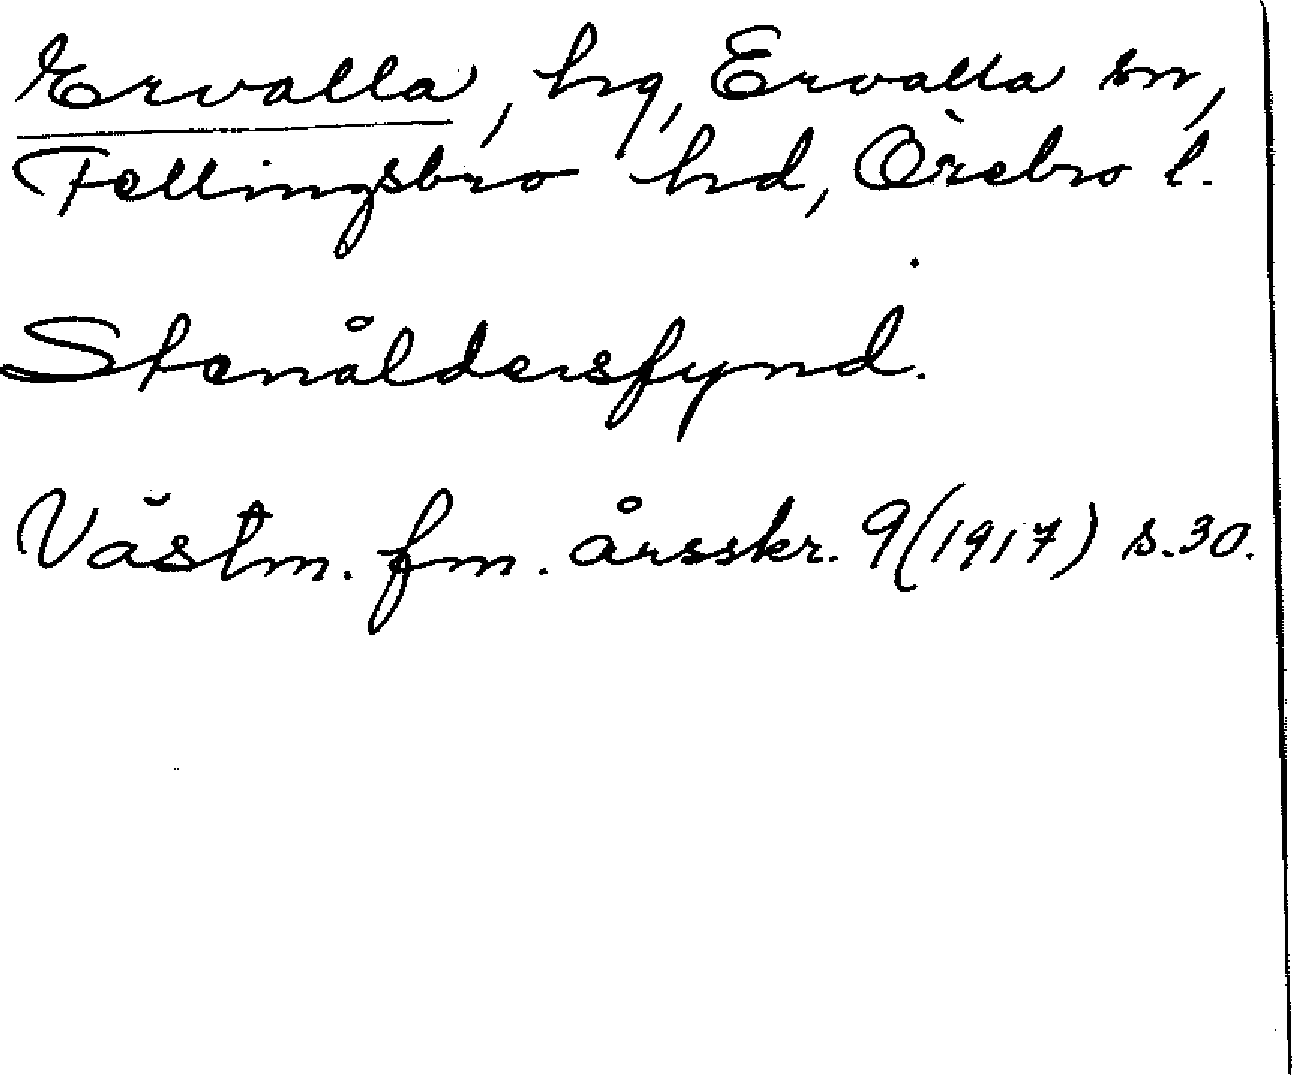 Ervalla, hg, Ervalla sn,
Fellingsbro hd, Örebro l.
Stenåldersfynd.
Västm. fm. årsskr. 9 (1917) s. 30.